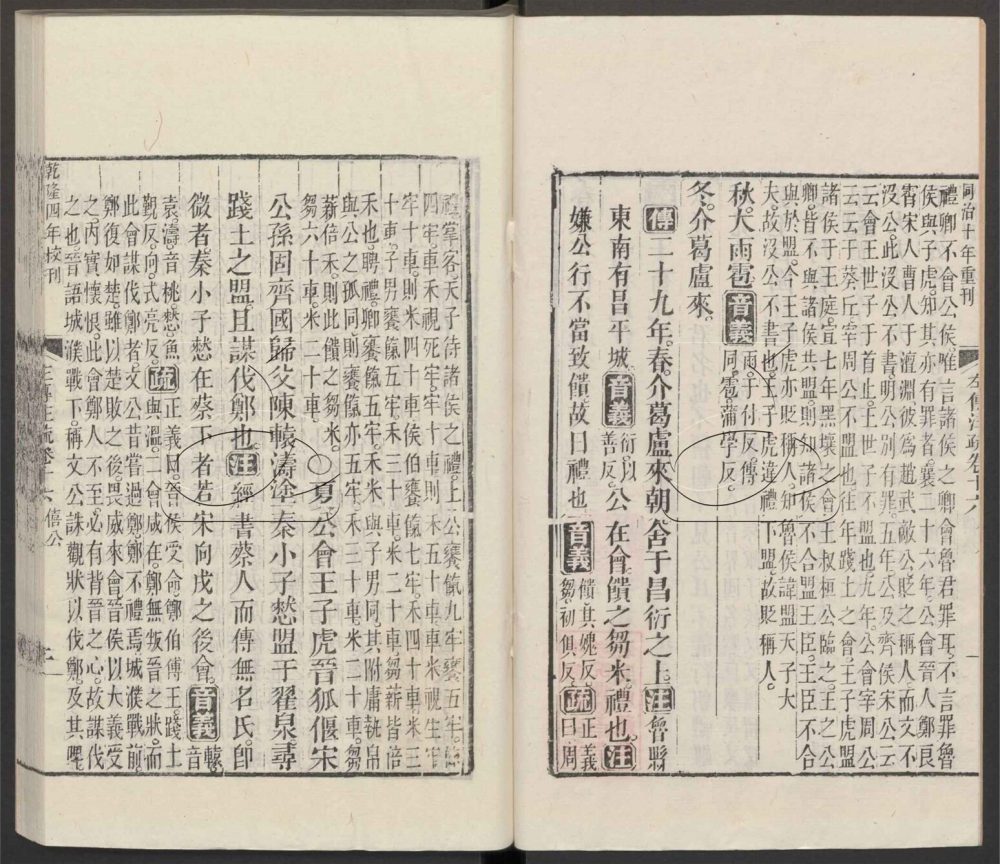 同治十年重刊
左傳注疏卷十六
一
禮卿不會公侯唯言諸侯之卿會魯君罪耳不言罪魯
侯與子虎知其亦有罪者襄二十六年公會晉人鄭良
霄宋人曹人于澶淵彼為趙武敵公貶之稱人而文不
沒公此沒公不書明公別有罪五年公及齊侯宋公云
云會王世子于首止王世子不盟也九年公會宰周公
云云于葵丘宰周公不盟也往年踐土之會王子虎盟
諸侯于王庭宣七年黑壤之會王叔桓公臨之王之公
卿皆不與諸侯共盟則知諸侯不合盟王臣王臣不合
與於盟今王子虎亦貶稱人知魯侯諱盟天子大
夫故沒公不書也王子虎違禮下盟故貶稱人
秋大雨雹音義雨于付反傳同雹蒲學反
冬介葛盧來
傳二十九年春介葛盧來朝舍于昌衍之上注魯縣
東南有昌平城音義衍以善反公在會饋之芻米禮也注
嫌公行不當致饋故曰禮也音義饋其媿反芻初俱反疏正義曰周
禮掌客天子待諸侯之禮上公饔餼九牢饔五牢
四牢車禾視死牢牢十車則禾五十車車米視生牢
牢十車則米四十車侯伯饔餼七牢禾四十車米三
十車子男饔餼五牢禾三十車米二十車芻薪皆倍
禾也聘禮卿饔餼五牢禾米與子男同其附庸執帛
與公之孤同則饔餼亦五牢禾三十車米二十車芻
薪倍禾則此饋之芻米米二十車
芻六十車
夏公會王子虎晉狐偃宋
公孫固齊國歸父陳轅濤塗秦小子憖盟于翟泉尋
踐土之盟且謀伐鄭也注經書蔡人而傳無名氏即
微者秦小子憖在蔡下者若宋向戌之後會音義轅音
袁濤音桃憖魚覲反向式亮反疏正義曰晉侯受命鄭伯傅王踐土
與溫二會咸在鄭無叛晉之狀而
此會謀伐鄭者文公昔嘗過鄭鄭不禮焉城濮戰前
鄭復如楚雖以楚敗之後畏威來會晉侯以大義受
之內實懷恨此會鄭人不至必有背晉之心故謀伐
之也晉語城濮戰下稱文公誅觀狀以伐鄭及其陴
乾隆四年校刊
僖公